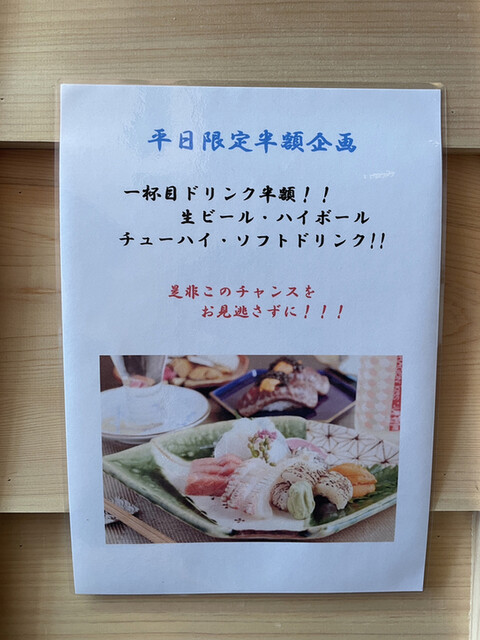 平日限定半額企画
一杯目ドリンク半額！！
生ビール・ハイボール
チューハイ・ソフトドリンク!!
是非このチャンスを
お見逃さずに！！！